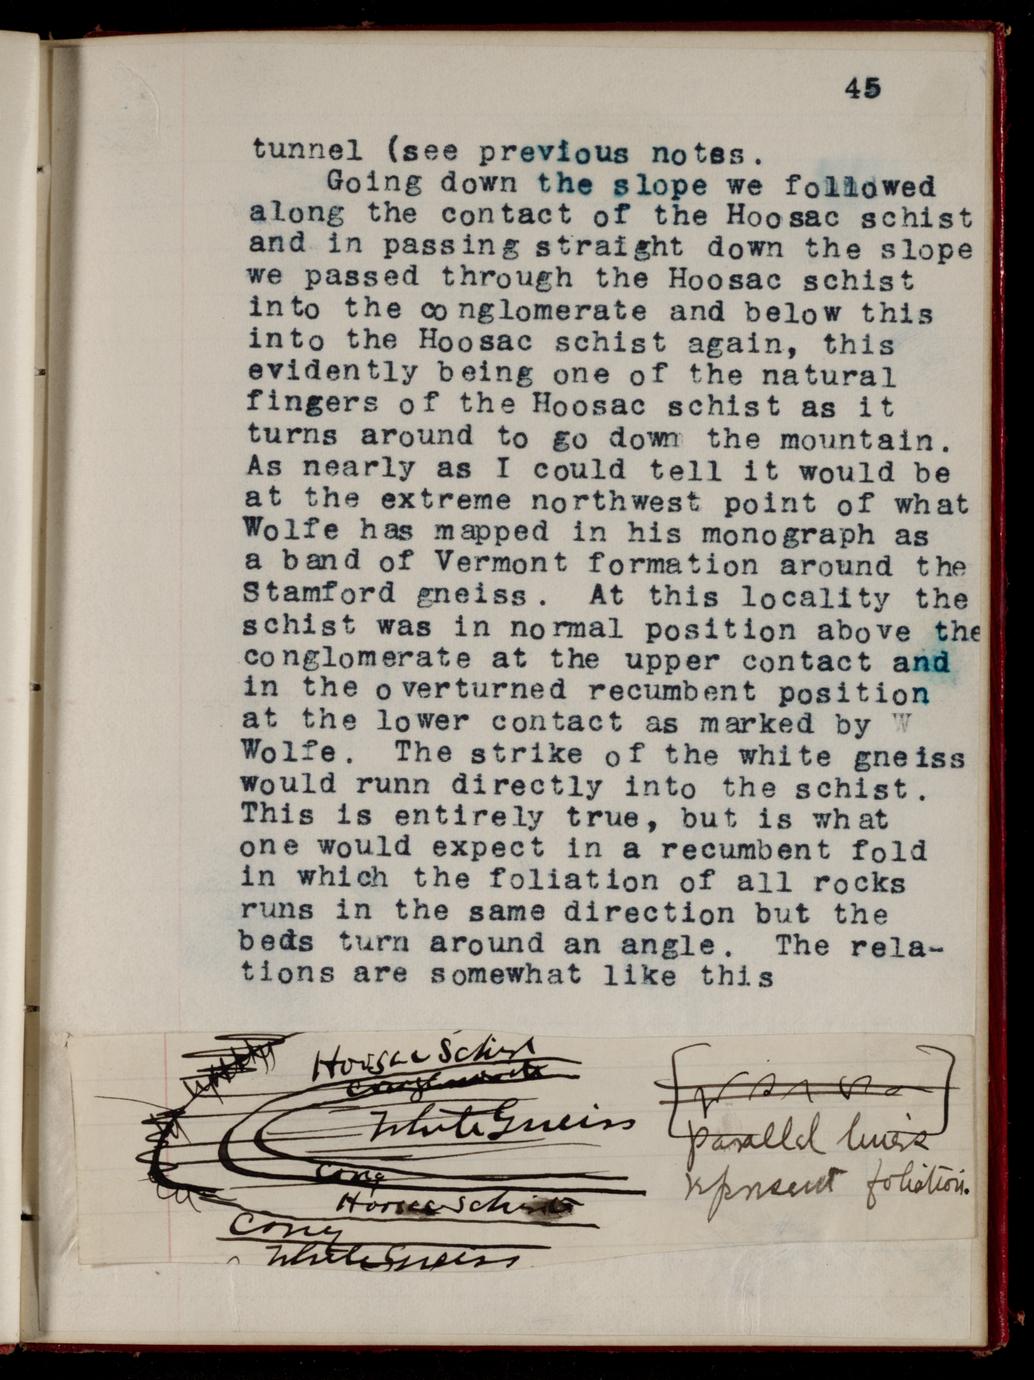 45
tunnel (see previous notes.
Going down the slope we followed
along the contact of the Hoosac schist
and in passing straight down the slope
we passed through the Hoosac schist
into the conglomerate and below this
into the Hoosac schist again, this
evidently being one of the natural
fingers of the Hoosac schist as it
turns around to go down the mountain.
As nearly as I could tell it would be
at the extreme northwest point of what
Wolfe has mapped in his monograph as
a band of Vermont formation around the
Stamford gneiss. At this locality the
schist was in normal position above the
conglomerate at the upper contact and
in the overturned recumbent position
at the lower contact as marked by W
Wolfe. The strike of the white gneiss
would runn directly into the schist.
This is entirely true, but is what
one would expect in a recumbent fold
in which the foliation of all rocks
runs in the same direction but the
beds turn around an angle. The rela-
tions are somewhat like this
Hoosac Schist
conglomerate
White Gneiss
cong
Hoosac Schist
Cong
White Gneiss
parallel lines
represent foliation.